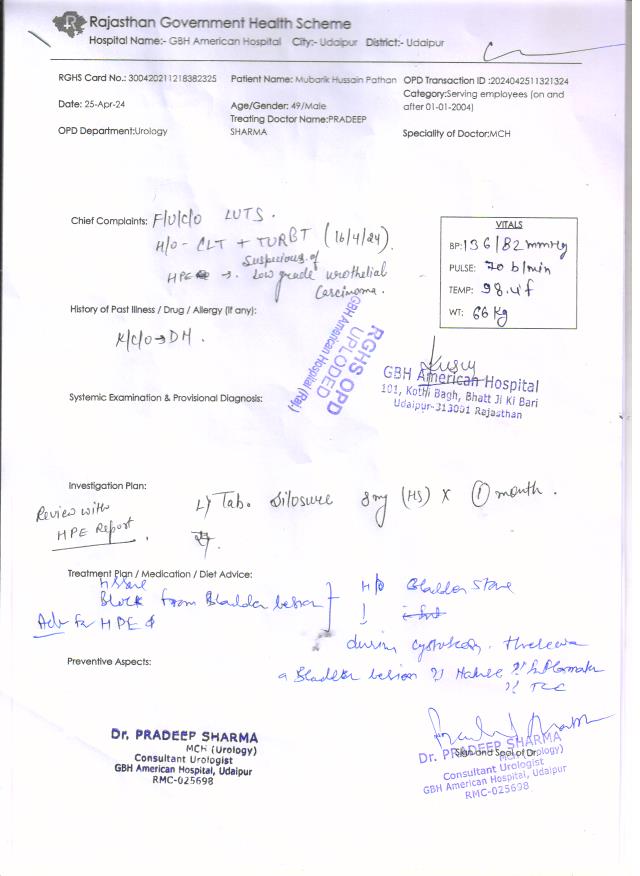 Rajasthan Government Health Scheme
Hospital Name:- GBH American Hospital City:- Udaipur District:- Udaipur
RGHS Card No.: 300420211218382325 Patient Name: Mubarik Hussain Pathan OPD Transaction ID :2024042511321324
Category:Serving employees (on and after 01-01-2004)
Date: 25-Apr-24 Age/Gender: 49/Male
Treating Doctor Name:PRADEEP SHARMA
OPD Department:Urology Speciality of Doctor:MCH
Chief Complaints: F/U/C/O LUTS.
H/O - CLT + TURBT (16/4/24).
Suspicious of
HPE → Low grade urothelial
Carcinoma.
VITALS
BP: 136/82 mmHg
PULSE: 70 b/min
TEMP: 98.4°f
WT: 66 Kg
History of Past Illness / Drug / Allergy (if any):
K/C/O → DM.
RGHS OPD
UPLODED
GBH American Hospital (Raj.)
GBH American Hospital
101, Kothi Bagh, Bhatt Ji Ki Bari
Udaipur-313001 Rajasthan
Systemic Examination & Provisional Diagnosis:
Investigation Plan:
Review with
HPE Report.
Tab. Silosure 8mg (HS) X 1 month.
Treatment Plan / Medication / Diet Advice:
tissue
Block from Bladder lesion
Adv for HPE
H/O Bladder Stone
during
a Bladder lesion
TCC
Preventive Aspects:
Dr. PRADEEP SHARMA
MCH (Urology)
Consultant Urologist
GBH American Hospital, Udaipur
RMC-025698
Sign and Seal of Dr
Dr. PRADEEP SHARMA
MCH (Urology)
Consultant Urologist
GBH American Hospital, Udaipur
RMC-025698